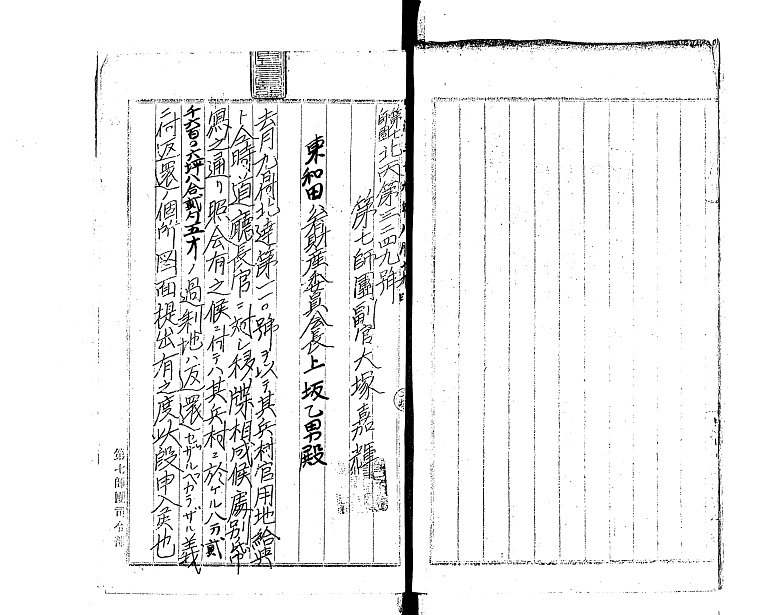 第七師團 北天第三三四九號
第七師團副官大塚嘉輝
東和田公有財産委員会長上坂乙男殿
去月九日付北達第一一〇號ヲ以テ其兵村官用地給與
ト会時道廰長官ニ対シ移牒相成候處別帋
寫之通リ照会有之候ニ付テハ其兵村ニ於ケル八万貳
千六百〇六坪八合貳勺五才ノ過剰地ハ返還セザルベカラザル義
ニ付返還ノ個所図面提出有之度此段申入候也
第七師團司令部